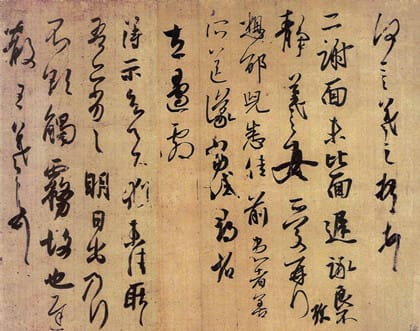 何言羲之頓首
二謝面未比面遲詠良不
靜羲之女愛再拜
想邰兒悉佳前患者善
所送議當試尋省
左邊劇
得示知足下猶未佳耿耿
吾亦劣劣明日出乃行
不欲觸霧故也遲
散王羲之頓首